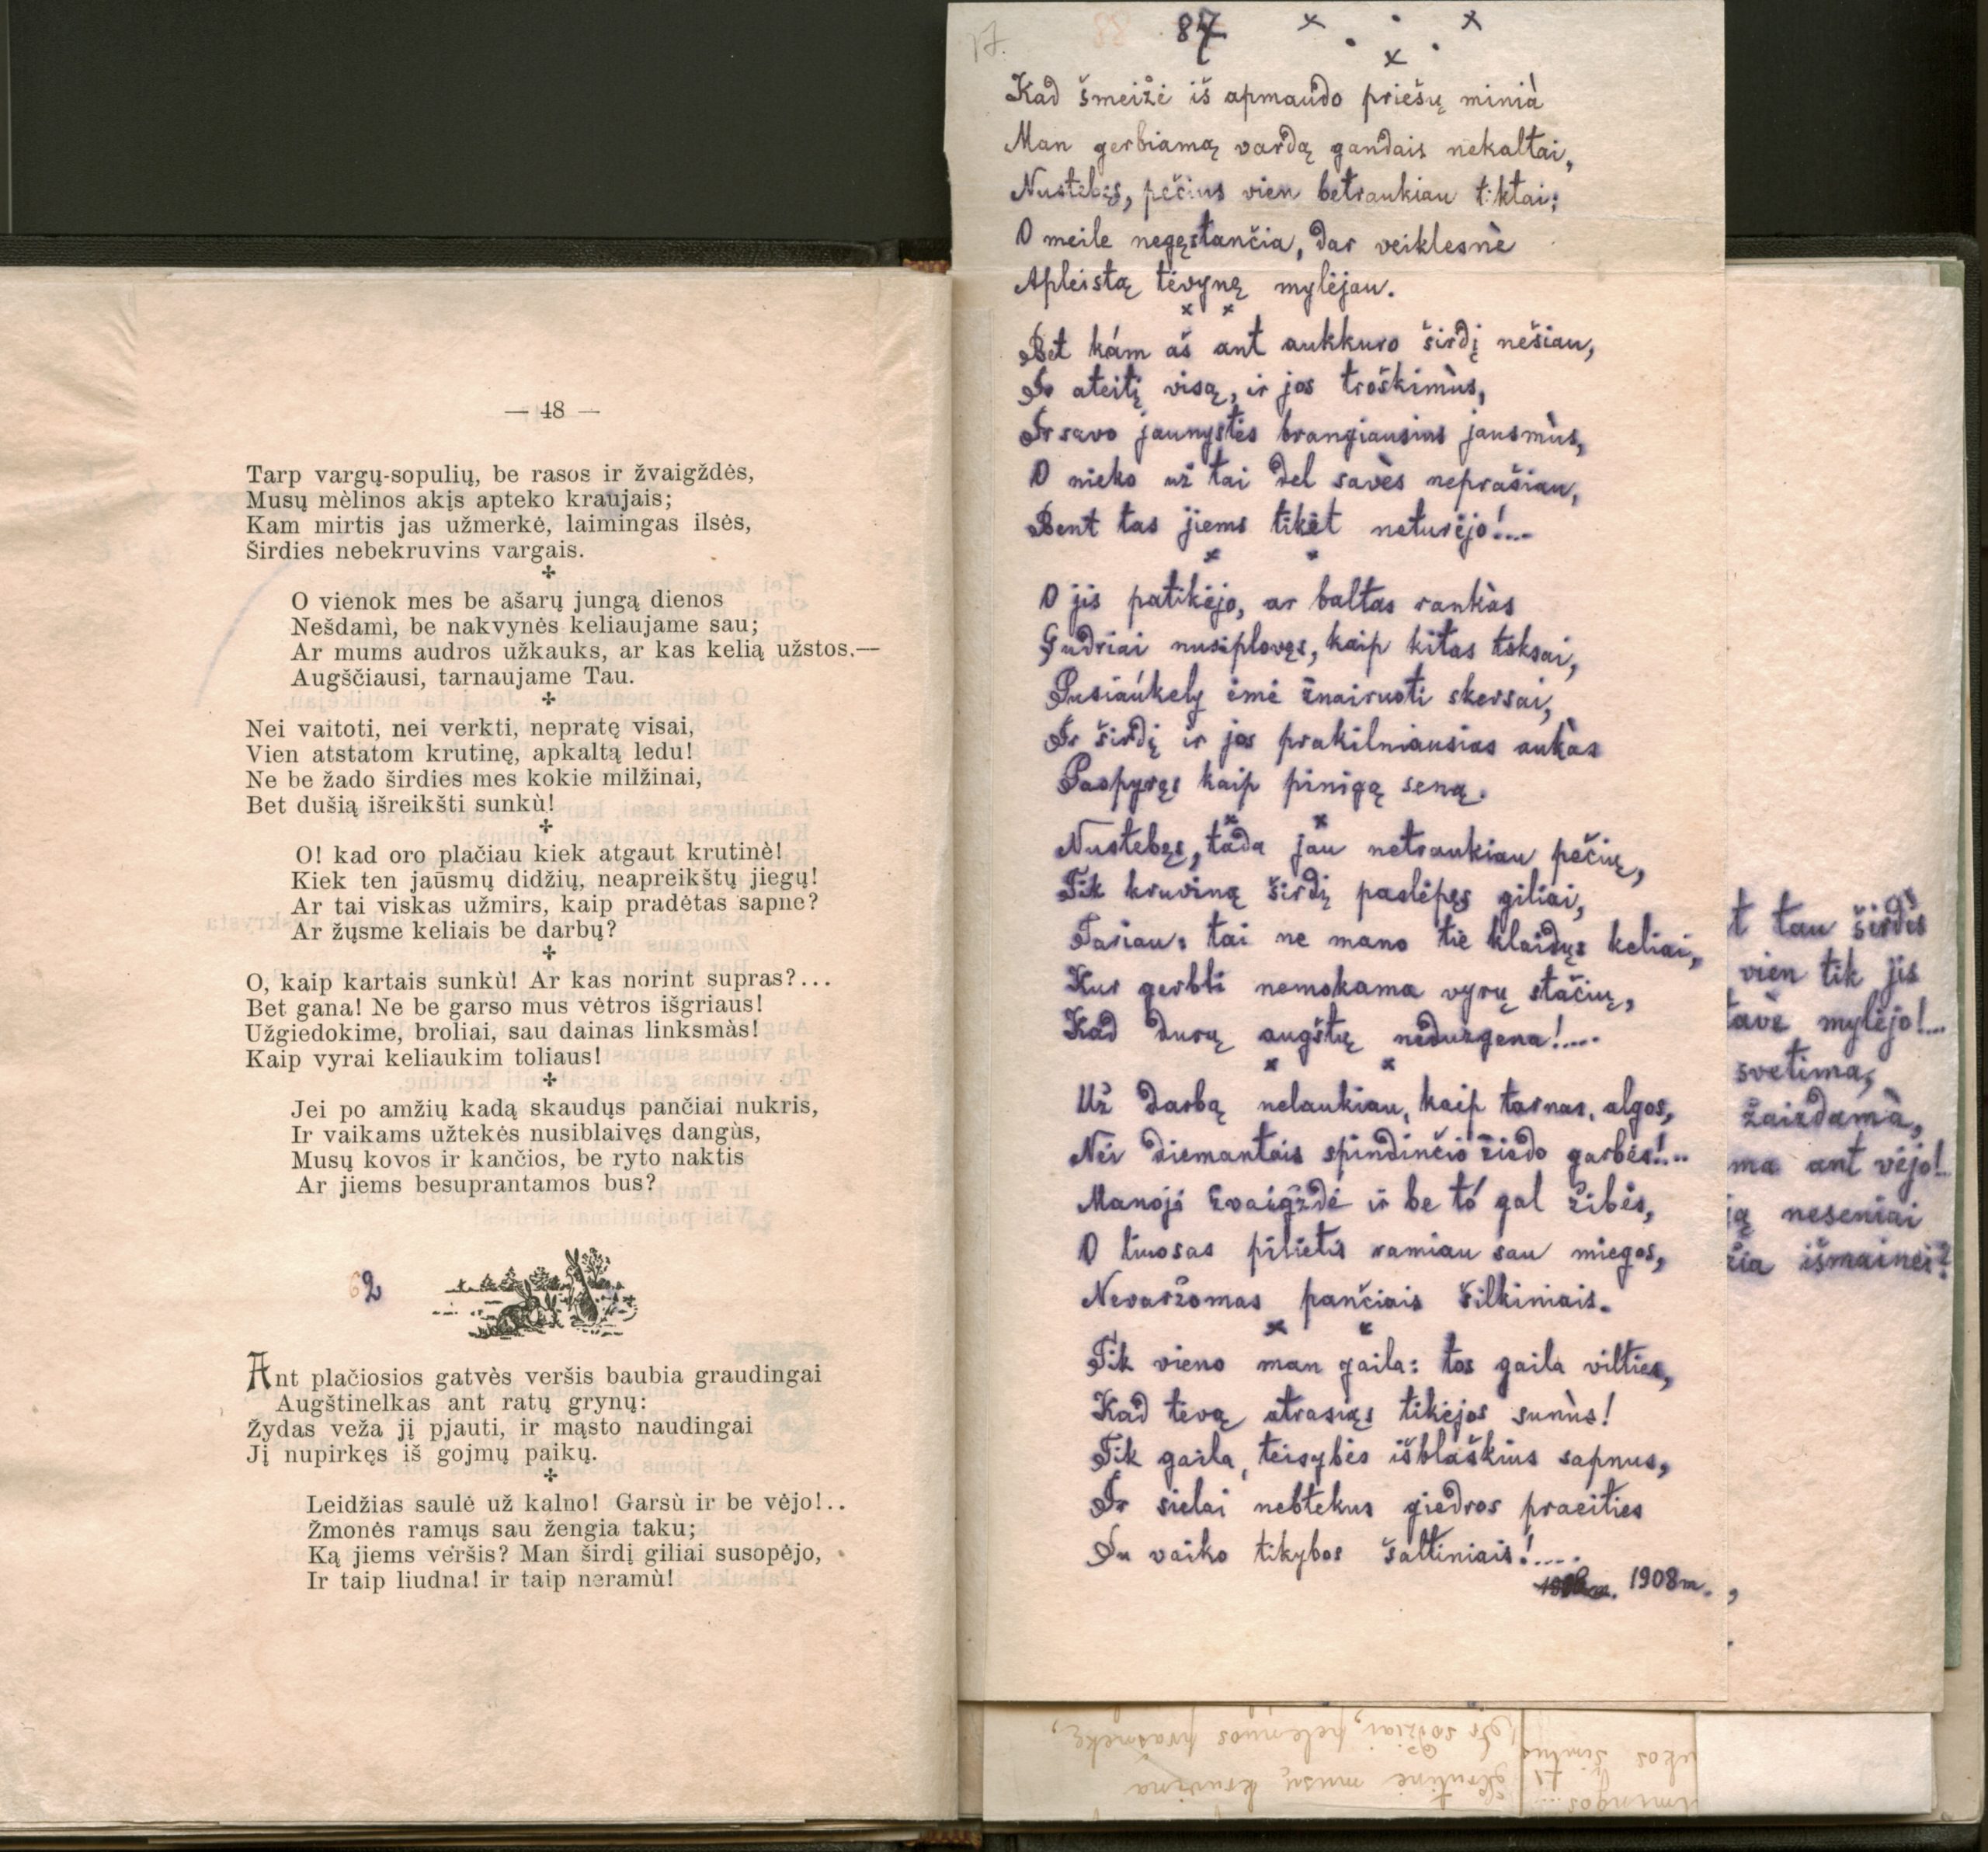 — 48 —
Tarp vargų-sopulių, be rasos ir žvaigždės,
Musų mėlinos akįs apteko kraujais;
Kam mirtis jas užmerkė, laimingas ilsės,
Širdies nebekruvins vargais.
O vienok mes be ašarų jungą dienos
Nešdami, be nakvynės keliaujame sau;
Ar mums audros užkauks, ar kas kelią užstos.—
Augščiausi, tarnaujame Tau.
Nei vaitoti, nei verkti, nepratę visai,
Vien atstatom krutinę, apkaltą ledu!
Ne be žado širdies mes kokie milžinai,
Bet dušią išreikšti sunkù!
O! kad oro plačiau kiek atgaut krutinè!
Kiek ten jaūsmų didžių, neapreikštų jiegų!
Ar tai viskas užmirs, kaip pradėtas sapne?
Ar žųsme keliais be darbų?
O, kaip kartais sunkù! Ar kas norint supras?...
Bet gana! Ne be garso mus vėtros išgriaus!
Užgiedokime, broliai, sau dainas linksmàs!
Kaip vyrai keliaukim toliaus!
Jei po amžių kadą skaudųs pančiai nukris,
Ir vaikams užtekės nusiblaivęs dangùs,
Musų kovos ir kančios, be ryto naktis
Ar jiems besuprantamos bus?
62
Ant plačiosios gatvės veršis baubia graudingai
Augštinelkas ant ratų grynų:
Žydas veža jį pjauti, ir mąsto naudingai
Jį nupirkęs iš gojmų paikų.
Leidžias saulė už kalno! Garsù ir be vėjo!..
Žmonės ramųs sau žengia taku;
Ką jiems veršis? Man širdį giliai susopėjo,
Ir taip liudna! ir taip neramù!
17.
87
Kad šmeižė iš apmaudo priešų minià
Man gerbiamą vardą gandais nekaltai,
Nustebęs, pečius vien betraukiau tiktai;
O meile negęstančia, dar veiklesnè
Apleistą tėvynę mylėjau.
Bet kám aš ant aukkuro širdį nešiau,
Ir ateitį visą, ir jos troškimùs,
Ir savo jaunystės brangiausius jausmùs,
O nieko už tai del savęs neprašiau,
Bent tas jiems tikėt neturėjo!...
O jis patikėjo, ar baltas rankàs
Gudriai nusiplovęs, kaip kitas tiksai,
Pusiaúkely ėmė žnairuoti skersai,
Ir širdį ir jos prakilniausias aukàs
Paspyręs kaip pinigą seną.
Nustebęs, tada jau netraukiau pečių,
Tik kruviną širdį paslėpęs giliai,
Tariau: tai ne mano tie klaidųs keliai,
Kur gerbti nemokama vyrų stačių,
Kad durų augštų nedurgena!....
Už darbą nelaukiau, kaip tarnas, algos,
Nei diemantais spindinčio žiedo garbės!..
Manoji žvaigždė ir be tó gal žibės,
O liuosas pilietis ramiau sau miegos,
Nevaržomas pančiais šilkiniais.
Tik vieno man gaila: tos gaila vilties,
Kad tėvą atrasiąs tikėjos sunùs!
Tik gaila, teisybės išblaškius sapnus,
Ir sielai nebtekus giedros praeities
Su vaiko tikybos šaltiniais!....
1908m.
t tau širdès
vien tik jis
tavè mylėjo!...
svetima,
žaizdamà,
ma ant vėjo!..
ją neseniai
čia išmainei?